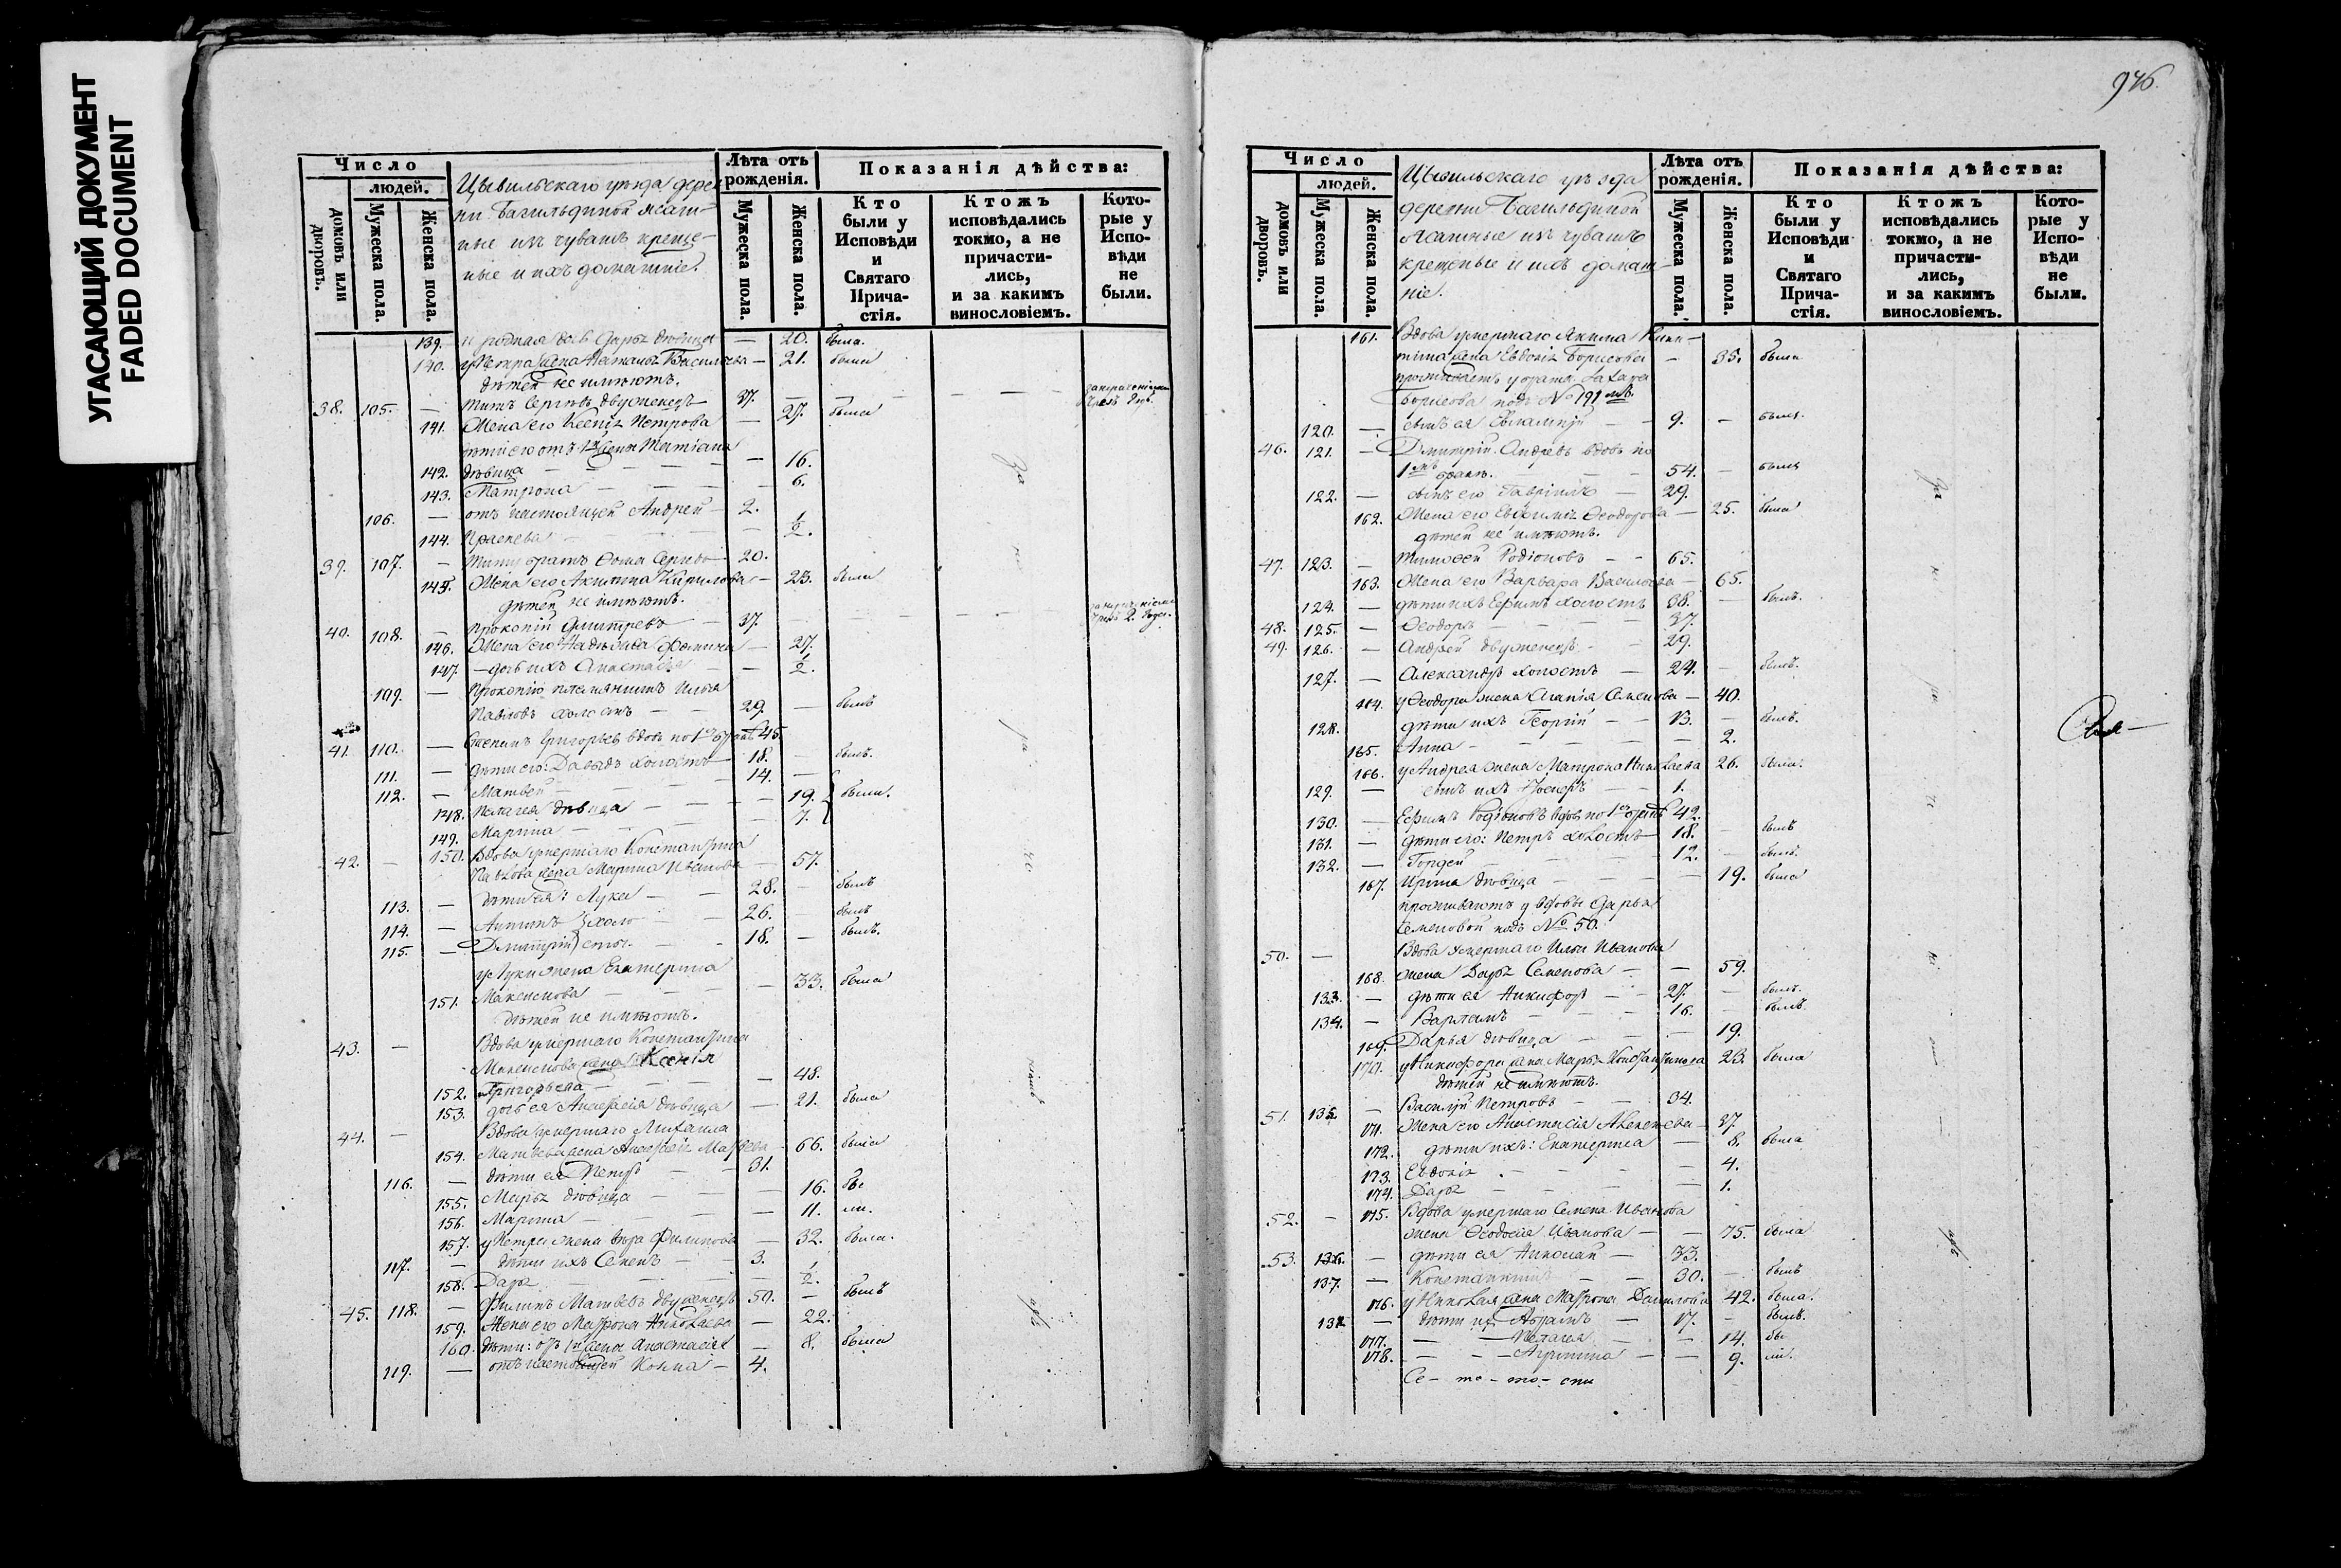 УГАСАЮЩИЙ ДОКУМЕНТ
FADED DOCUMENT
Число
людей.
домовъ или дворовъ.
Мужеска пола.
Женска пола.
Цывильскаго уѣзда дерев
ни Багильдиной ясаш-
ные изъ чувашъ креще-
ные и ихъ домашніе.
Лѣта отъ рожденія.
Мужеска пола.
Женска пола.
Показанія дѣйства:
Кто были у Исповѣди и Святаго Прича-стія.
Ктожъ исповѣдались токмо, а не причасти-лись, и за какимъ винословіемъ.
Кото-рые у Испо-вѣди не были.
139. Дарья дѣвица — 20. была.
140. Васильева — 21. была
дѣтей не имѣютъ.
38. 105. — Титъ Сергѣевъ двуженецъ 37.
141. Жена его Ксенія Петрова — 27. была
дѣти его отъ 1й жены Татіана
142. дѣвица — 16.
143. Матрона — 6.
106. — отъ настоящей Андрей 2.
144. Праскева — ½.
39. 107. — Титу братъ Ѳома Сергѣевъ 20.
145. Жена его Акилина Кирилова — 23. была
дѣтей не имѣютъ.
40. 108. — Прокопій Дмитревъ — 37.
146. Жена его Надежда Фомина — 27.
147. — дочь ихъ Анастасія — ½.
109. — Прокопію племянникъ Илья
Павловъ холостъ — 29. — былъ
41. 110. — Степанъ Григорьевъ вдовъ по 1мъ бракѣ 45.
111. — дѣти его: Давыдъ холостъ 18. — былъ.
112. — Матвей — 14. —
148. Пелагея дѣвица — 19. были.
149. Марина — 7.
42. — 150. Вдова умершаго Константина
Павлова жена Марина Иванова — 57.
113. — дѣти ея: Лука — 28. — былъ
114. — Антипъ холо- 26. — былъ
115. — Дмитрій сты. — 18. — былъ.
у Луки жена Екатерина
151. Максимова — 33. была
дѣтей не имѣютъ.
43. — Вдова умершаго Константина
Максимова жена Ксенія
152. Григорьева — 48.
153. дочь ея Анастасія дѣвица — 21. была
44. — Вдова умершаго Михаила
154. Матвева жена Анастасія — 66. была
116. — дѣти ея Петръ — 31.
155. Марья дѣвица — 16. бы
156. Марина — 11. ли.
157. у Петра жена Вера Филипова — 32. была.
117. — дѣти ихъ Семенъ — 3.
158. Дарья — ½.
45. 118. — Филипъ Матвевъ двуженецъ 50. — былъ
159. Жена его Матрона Николаева — 22.
160. дѣти: отъ 1й жены Анастасія — 8. была
119. — отъ настоящей Конна — 4.
946.
Число
людей.
домовъ или дворовъ.
Мужеска пола.
Женска пола.
Цывильскаго уѣзда
деревни Багильдиной
Ясашные изъ чувашъ
крещеные и ихъ домаш-
ніе.
Лѣта отъ рожденія.
Мужеска пола.
Женска пола.
Показанія дѣйства:
Кто были у Исповѣди и Святаго Прича-стія.
Ктожъ исповѣдались токмо, а не причасти-лись, и за какимъ винословіемъ.
Кото-рые у Испо-вѣди не были.
161. Вдова умершаго Якима Ники-
тина жена Евдокія Борисова — 35. была
проживаетъ у брата Захара
Борисова подъ № 191мъ.
120. — сынъ ея Евлампій — 9. — былъ.
46. 121. — Дмитрій Андревъ вдовъ по
1мъ бракѣ. — 54. — былъ
122. — сынъ его Гавріилъ — 29.
162. Жена его Евфимія Ѳеодорова — 25. была
дѣтей не имѣютъ.
47. 123. — Тимоѳей Родіоновъ — 65.
163. Жена его Варвара Васильева — 65.
124. — дѣти ихъ Ефимъ холостъ 38. — былъ.
48. 125. — Ѳеодоръ — 37.
49. 126. — Андрей двуженецъ — 29.
127. — Александръ холостъ — 24. — былъ.
164. у Ѳеодора жена Агапія Семенова — 40.
128. дѣти ихъ Георгій — 13. — былъ.
165. Анна — 2.
166. у Андрея жена Матрона Николаева 26. была.
129. — сынъ ихъ Іосифъ — 1.
130. — Ефимъ Родіоновъ вдовъ по 1мъ бракѣ 42.
131. — дѣти его: Петръ холостъ 18. — былъ
132. — Гордей — 12. — былъ.
167. Ирина дѣвица — 19. была
проживаютъ у вдовы Дарьи
Семеновой подъ № 50.
50. — Вдова умершаго Ильи Иванова
168. жена Дарья Семенова — 59.
133. — дѣти ея Никифоръ — 27. — былъ.
134. — Варламъ — 16. — былъ.
169. Дарья дѣвица — 19.
170. у Никифора жена Марья Константинова 23. была
дѣтей не имѣютъ.
51. 135. — Василій Петровъ — 34.
171. Жена его Анастасія — 37.
172. дѣти ихъ: Екатерина — 8. была
173. Евдокія — 4.
174. Дарья — 1.
52. — 175. Вдова умершаго Семена Иванова
жена Ѳеодосія Иванова — 75. была
53. 136. — дѣти ея Николай — 33.
137. — Константинъ — 30. — былъ
176. у Николая жена Матрона Данилова 42. была.
138. — дѣти ихъ Абрамъ — 17. — былъ.
177. — Пелагея — 14. бы
178. — Агрипина — 9. ли.
Се- то- то- спи